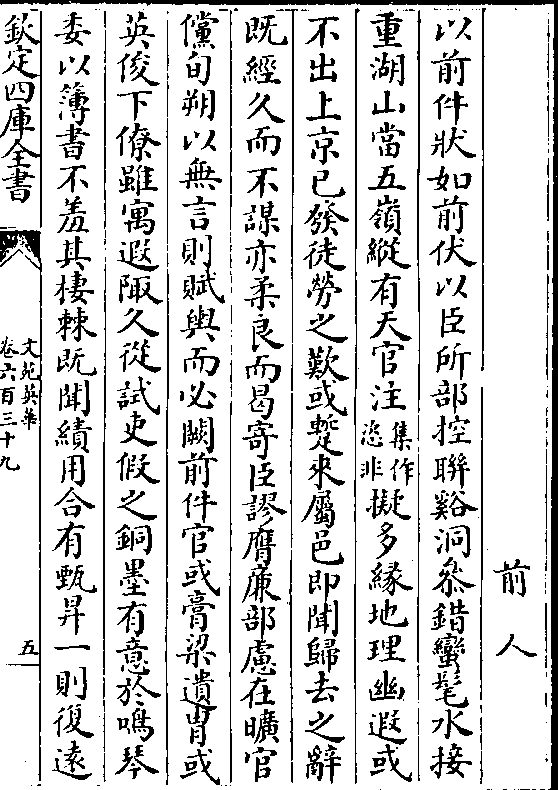 前人
以前件狀如前伏以臣所部控聯谿洞叅錯蠻髦水接
重湖山當五嶺縱有天官注集作恣非擬多緣地理幽遐或
不出上京已發徒勞之歎或蹔來屬邑即聞歸去之辭
既經久而不謀亦柔良而曷寄臣謬膺廉部慮在曠官
儻旬朔以無言則賦輿而必闕前件官或膏粱遺胄或
英俊下僚雖寓遐陬久從試吏假之銅墨有意於鳴琴
委以簿書不羞其棲棘既聞績用合有甄昇一則復遠
欽定四庫全書
文苑英華
卷六百三十九
五